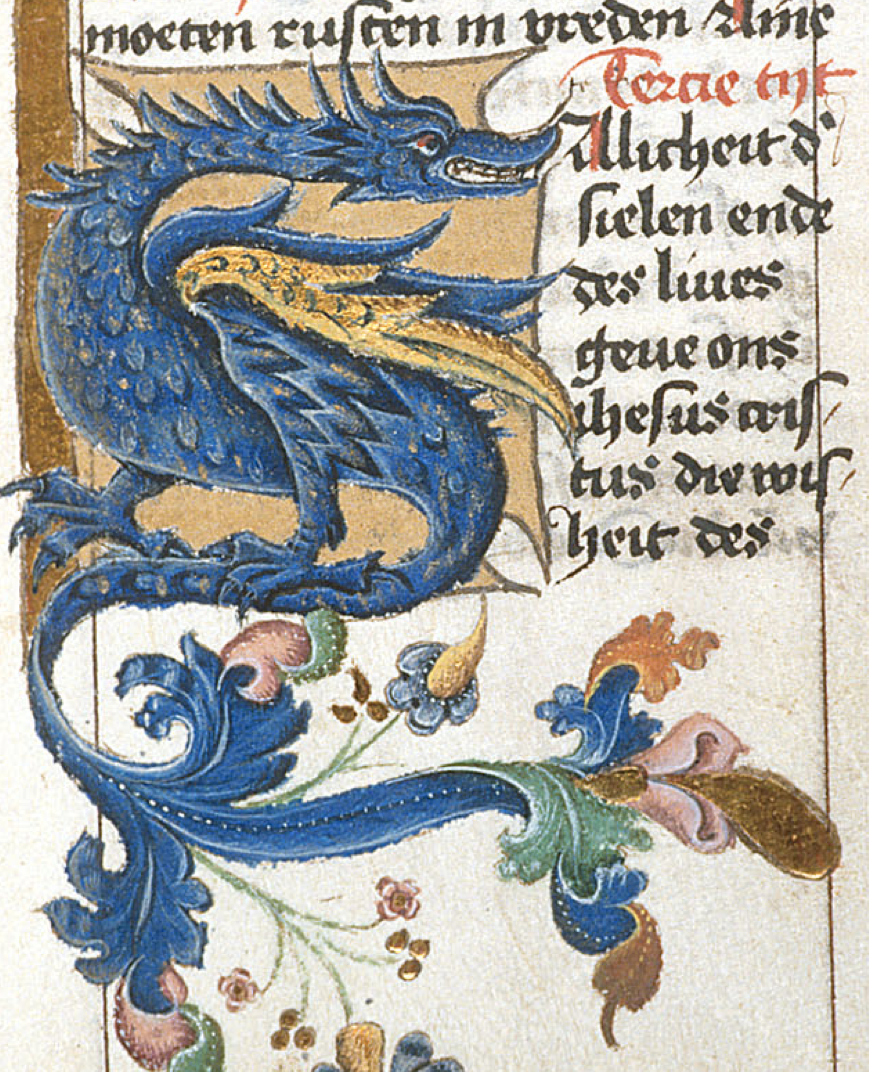 moeten rusten in vreden Ame
Tercie tijt
Allicheit d'
sielen ende
des liues
geue ons
ihesus cris/
tus die wijs/
heit des